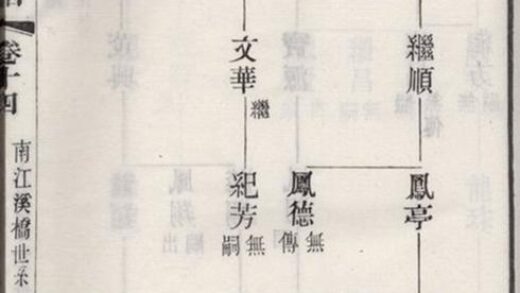 繼順
鳳亭
鳳德
無傳
文華
繼
紀芳
無嗣
卷十四
南江溪橋世系